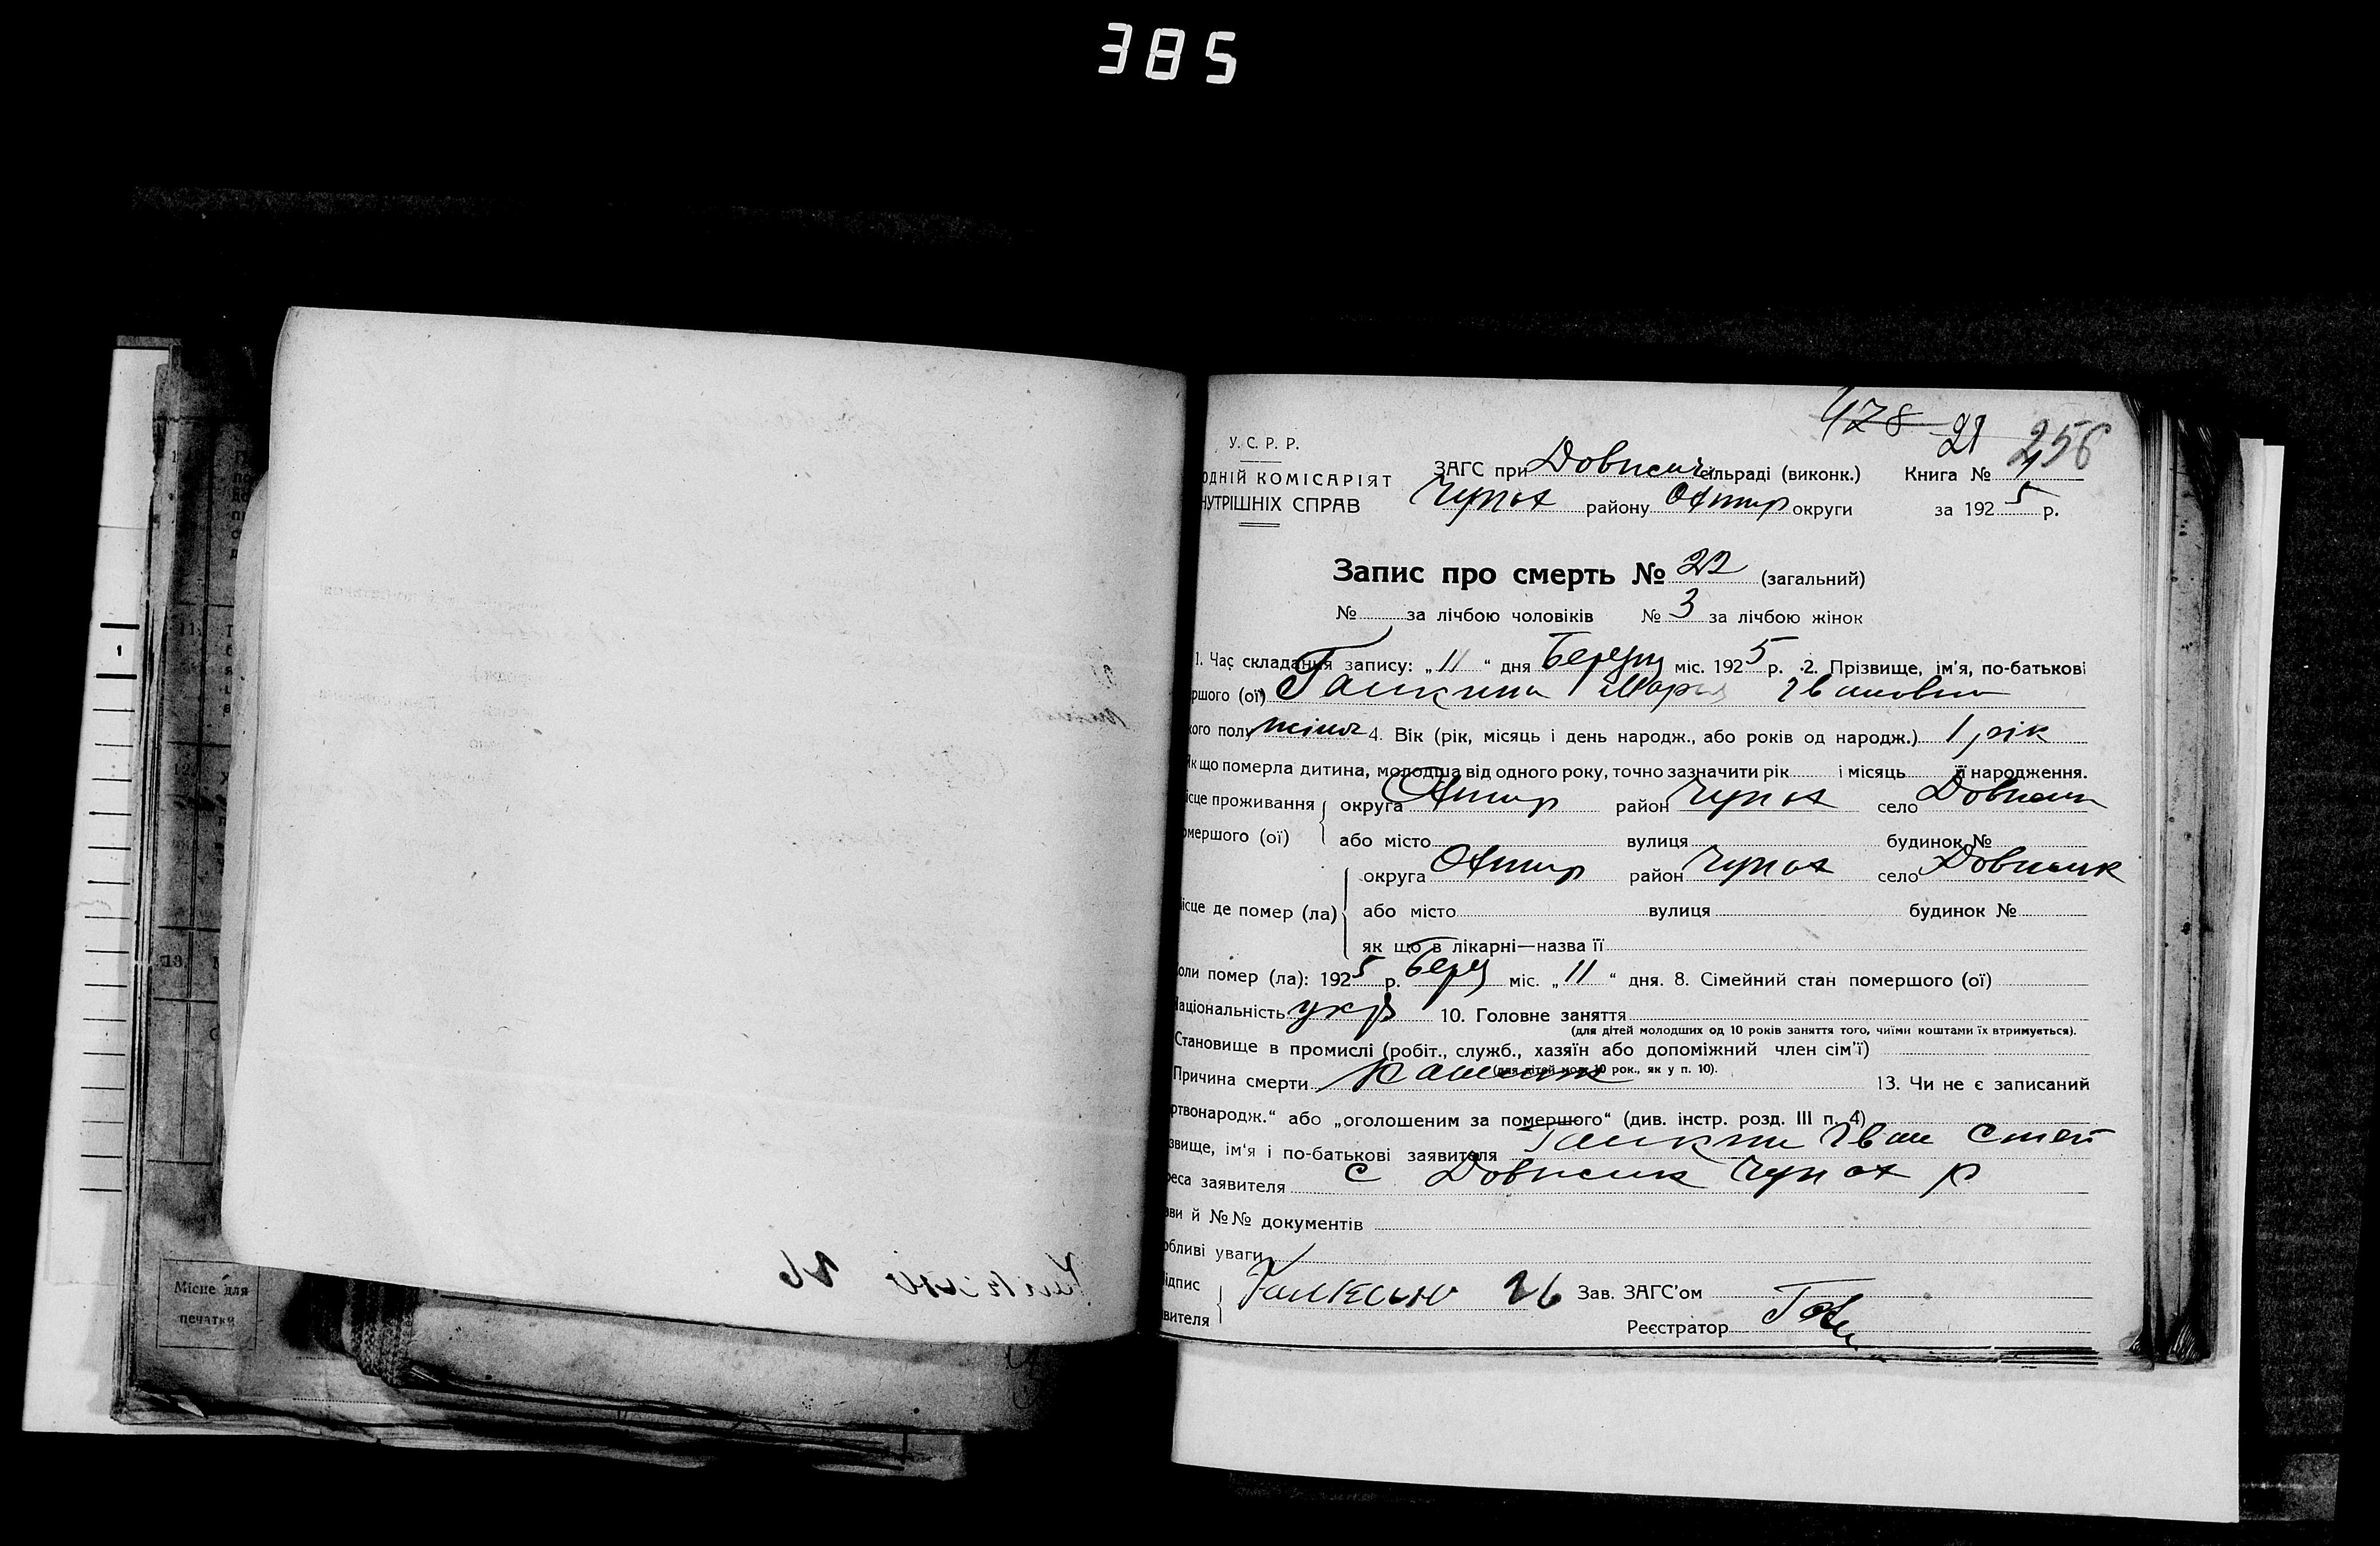 385
478 21 256
У. С. Р. Р.
ОДНІЙ КОМІСАРІЯТ
НУТРІШНІХ СПРАВ
ЗАГС при Довжик сільраді (виконк.) Книга №
Чупах району Охтир округи за 1925 р.
Запис про смерть № 22 (загальний)
№ за лічбою чоловіків № 3 за лічбою жінок
1. Час складання запису: „11“ дня Березня міс. 1925 р. 2. Прізвище, ім'я, по-батькові
ршого (ої) Мария Івановна
кого полу жіноч 4. Вік (рік, місяць і день народж., або років од народж.) 1 рік
Як що померла дитина, молодша від одного року, точно зазначити рік і місяць її народження.
ісце проживання округа Охтир район Чупах село Довжик
омершого (ої) або місто вулиця будинок №
округа Охтир район Чупах село Довжик
ісце де помер (ла) або місто вулиця будинок №
як що в лікарні—назва її
оли помер (ла): 1925 р. Берез міс. „11“ дня. 8. Сімейний стан помершого (ої)
Національність укр 10. Головне заняття
(для дітей молодших од 10 років заняття того, чиїми коштами їх втримується).
Становище в промислі (робіт., служб., хазяїн або допоміжний член сім'ї)
(для дітей мол. 10 рок., як у п. 10).
Причина смерти 13. Чи не є записаний
ртвонародж.“ або „оголошеним за помершого“ (див. інстр. розд. III п. 4)
звище, ім'я і по-батькові заявителя Іван Степ
реса заявителя с Довжик Чупах р
зви й №№ документів
обливі уваги
ідпис Зав. ЗАГС'ом
вителя Реєстратор
1
11.
12.
13.
Місце для
печатки